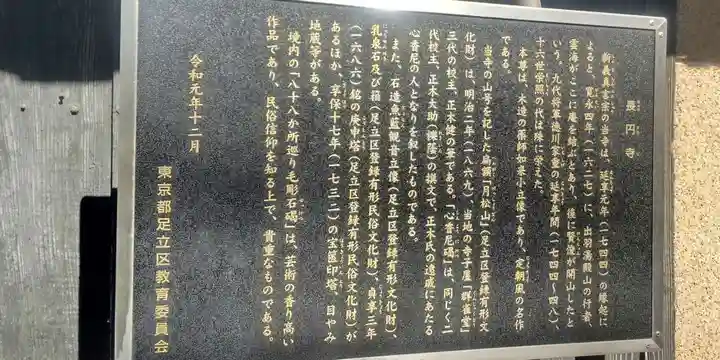 長円寺
新義真言宗の当寺は、延享元年（一七四四）の縁起に
よると、寛永四年（一六二七）に、出羽湯殿山の行者
雲海がここに庵を結んであり、後に賢俊が開山したと
いう。九代将軍徳川家重の延享年間（一七四四～四八）、
十六世栄照の代は殊に栄えた。
本尊は、木造の薬師如来小立像であり、定朝風の名作
である。
当寺の山号を記した扁額「月松山」（足立区登録有形文
化財）は、明治二年（一八六九）、当地の寺子屋「群雀堂」
三代の校主、正木健の筆である。「心香尼碣」は、同じく二
代校主、正木太助（撲蔭）の撰文で、正木氏の遠戚にあたる
心香尼の人となりを叙したものである。
また、石造魚籃観音立像（足立区登録有形文化財）、
乳泉石及び箱（足立区登録有形民俗文化財）、貞享三年
（一六八六）銘の庚申塔（足立区登録有形民俗文化財）が
あるほか、享保十七年（一七三二）の宝篋印塔、目やみ
地蔵等がある。
境内の「八十八か所巡り毛彫石碣」は、芸術の香り高い
作品であり、民俗信仰を知る上で、貴重なものである。
令和元年十二月
東京都足立区教育委員会